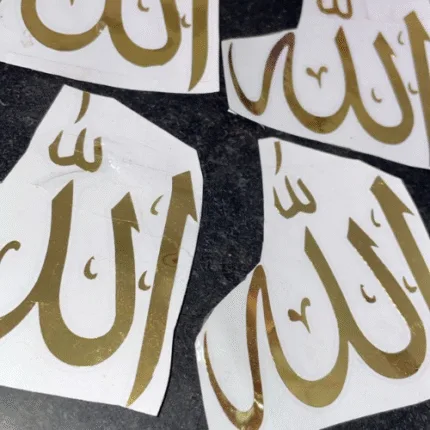 الله
الله
الله
الله